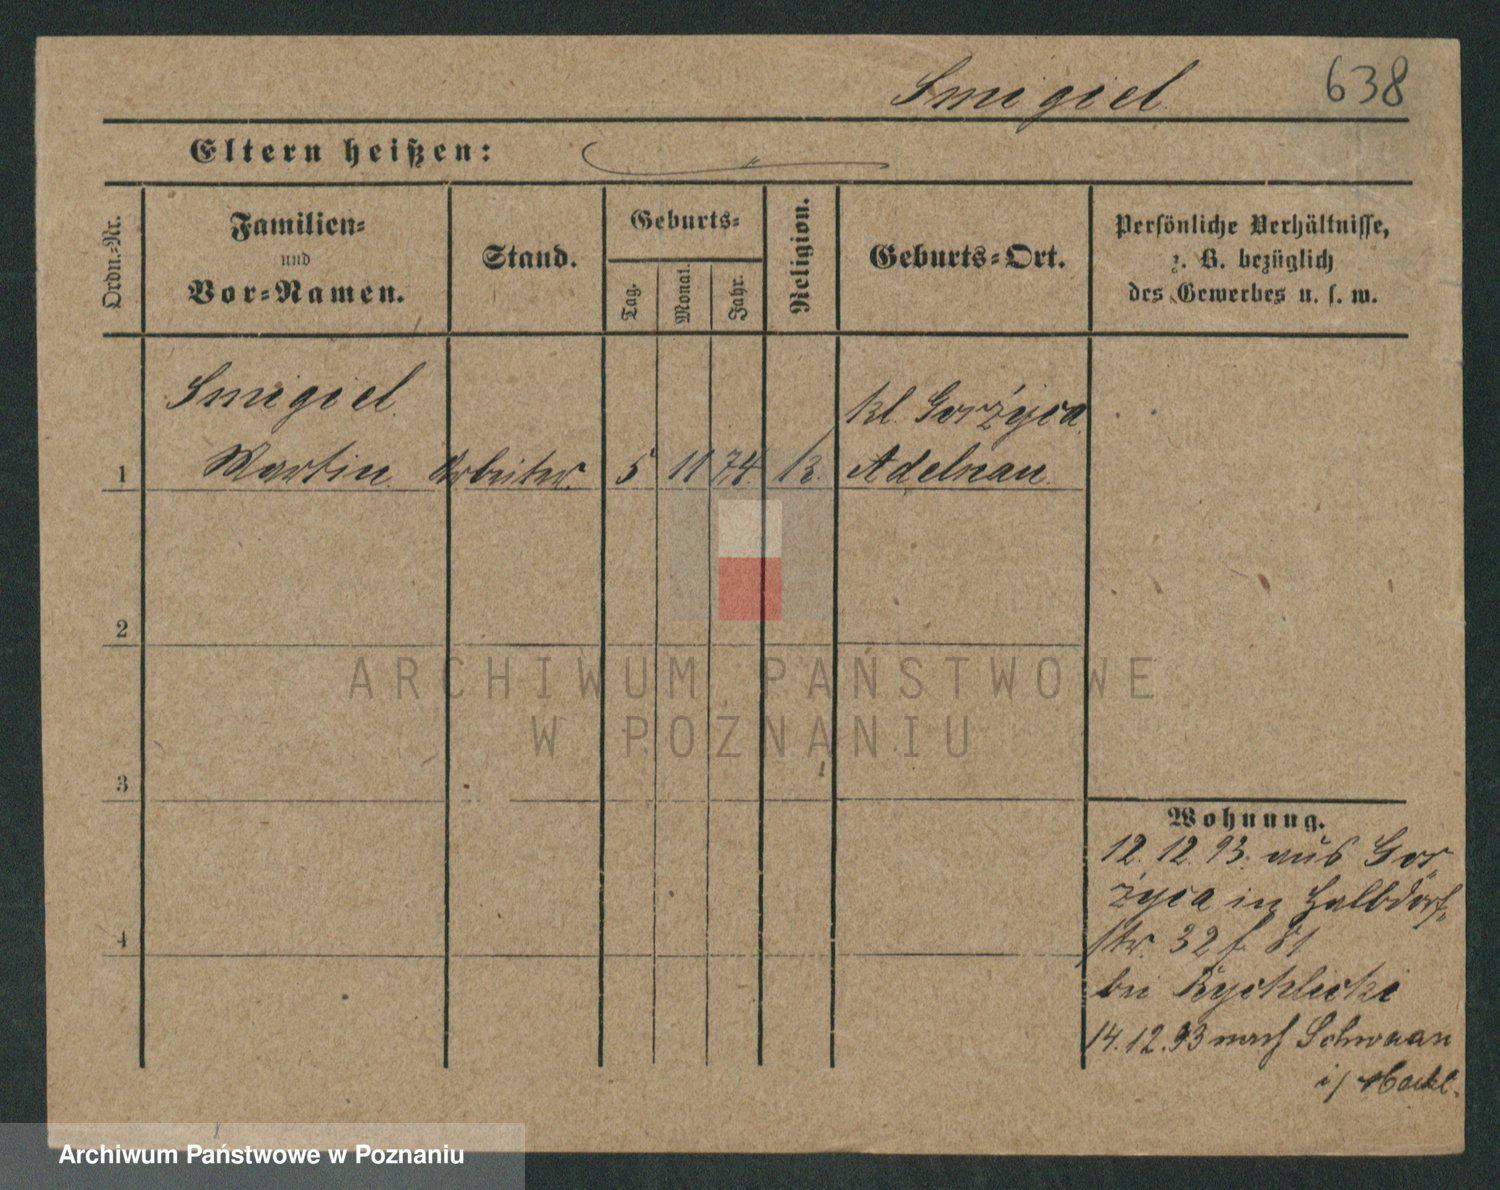 Smigiel
638
Eltern heißen:
Ordn.-Nr.
Familien-
und
Vor-Namen.
Stand.
Geburts-
Tag.
Monat.
Jahr.
Religion.
Geburts-Ort.
Persönliche Verhältnisse,
z. B. bezüglich
des Gewerbes u. s. w.
Smigiel
kl. Gorżyca
1 Martin Arbeiter. 5 11 74 k. Adelnau
2
ARCHIWUM PAŃSTWOWE
W POZNANIU
3
Wohnung.
12. 12. 93. aus Gor
życa in Halbdorf-
str. 32 f. 81
4
bei Rychlicki
14. 12. 93 nach Schwaan
i/ Meckl.
Archiwum Państwowe w Poznaniu